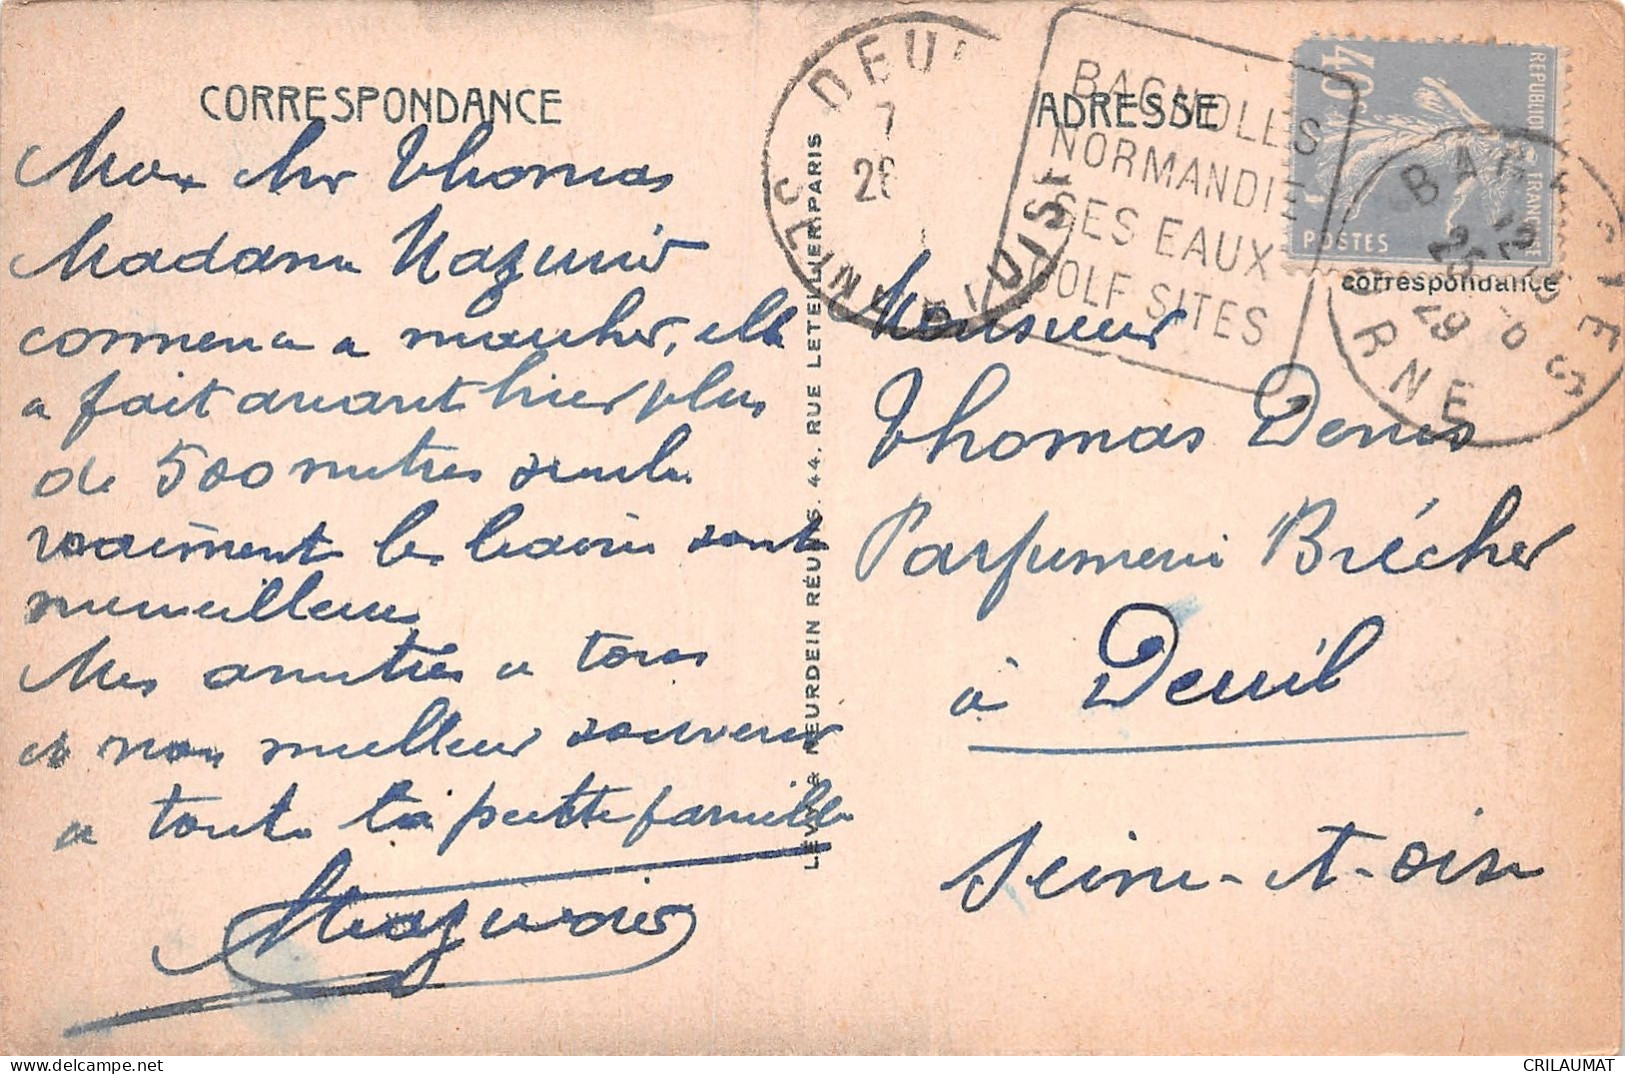 CORRESPONDANCE
Mon cher Thomas
Madame Maguin
commence a marcher, elle
a fait avant hier plus
de 500 metres seule
vraiment les bains sont
merveilleux
Mes amitiés a tous
et mon meilleur souvenir
a toute la petite famille
LEVY & NEURDEIN RÉUNIS. 44. RUE LETELLIER. PARIS
ADRESSE
correspondance
Monsieur
Thomas Denis
Parfumerie Brécher
à Deuil
Seine-et-oise
DEUIL
7
26
BAGNOLES
NORMANDIE
SES EAUX
GOLF SITES
40c
REPUBLIQUE FRANÇAISE
POSTES
ORNE
26
29
CRILAUMAT